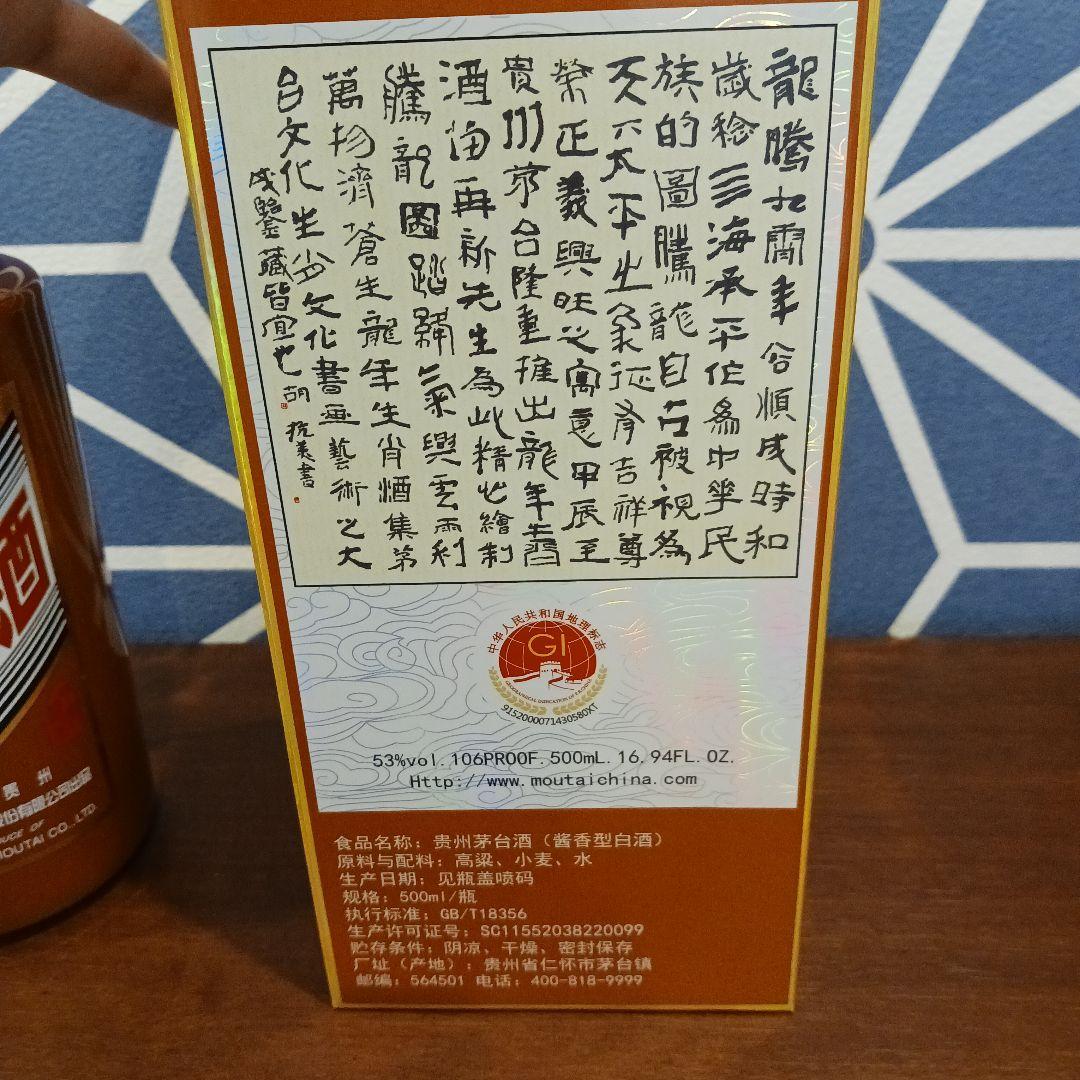 龍騰九霄年谷順成時和
歲稔三海承平作為中華民
族的圖騰龍自古被視為
天下太平之象征有吉祥尊
榮正義興旺之寓意甲辰至
貴州茅台隆重推出龍年生肖
酒笛再新先生為此精心繪制
騰龍圖踏綿氣興雲雨利
萬物濟蒼生龍年生肖酒集茅
台文化生肖文化書画藝術之大
成鑒藏皆宜也 胡抗美書
中华人民共和国地理标志
GI
GEOGRAPHICAL INDICATION OF P.R.CHINA
9152000071430580XT
53%vol.106PROOF.500mL.16.94FL.OZ.
Http://www.moutaichina.com
食品名称：贵州茅台酒（酱香型白酒）
原料与配料：高粱、小麦、水
生产日期：见瓶盖喷码
规格：500ml/瓶
执行标准：GB/T18356
生产许可证号：SC11552038220099
贮存条件：阴凉、干燥、密封保存
厂址（产地）：贵州省仁怀市茅台镇
邮编：564501 电话：400-818-9999
酒
贵州
股份有限公司出品
DUCE OF
MOUTAI CO.,LTD.